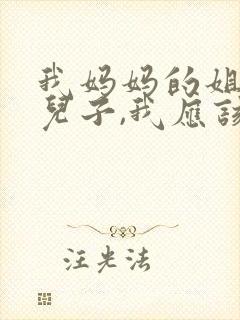 我妈妈的姐
兒子,我应该
汪光法